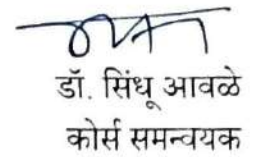 डॉ. सिंधू आवळे
कोर्स समन्वयक